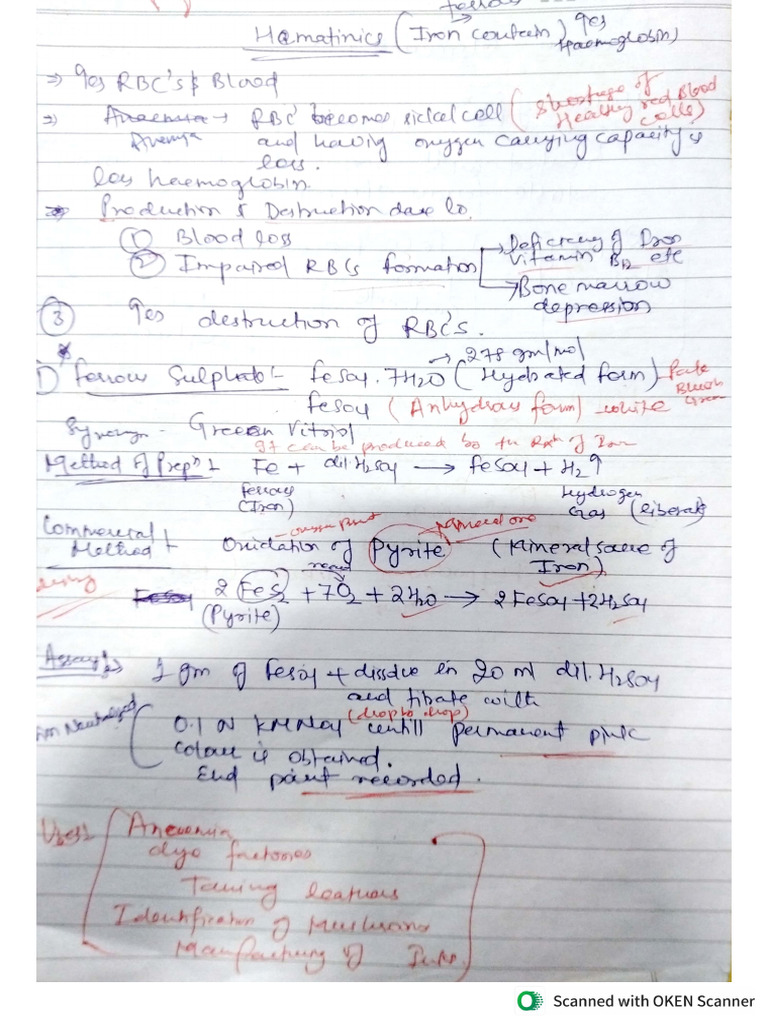 Ferrous
Hematinics (Iron contain) ↑es Haemoglobin)
⇒ ↑es RBC's & Blood
⇒ Anaemia → RBC becomes sickel cell (Shortage of Healthy red Blood cells)
and having oxygen carrying capacity is
loss.
loss haemoglobin.
⇒ Production & Destruction due to.
① Blood loss
② Impaired RBCs formation → Deficiency of Iron Vitamin B12 etc
→ Bone marrow depression
③ ↑es destruction of RBC's.
→ 278 gm/mol
1) Ferrous Sulphate :- FeSO4. 7H2O (Hydrated form) Pale Bluish Green
FeSO4 (Anhydrous form) - white
Synonym - Green Vitriol
It can be produced by the Rxn of Iron
Method of Prepn :- Fe + dil. H2SO4 → FeSO4 + H2↑
Ferrous (Iron) Hydrogen Gas (liberate)
Commercial Method :- Oxidation of Pyrite (Mineral source of Iron)
FeSO4 2FeS2 + 7O2 + 2H2O → 2FeSO4 + 2H2SO4
(Pyrite)
Assay :- 1 gm of FeSO4 + dissolve in 20 ml dil. H2SO4
and titrate with
0.1 N KMNO4 (drop to drop) untill permanent pink
colour is obtained.
End point recorded.
Uses:
dye factories
Taning leathers
Identification of Mushrooms
Manufacturing of Inks.
Scanned with OKEN Scanner